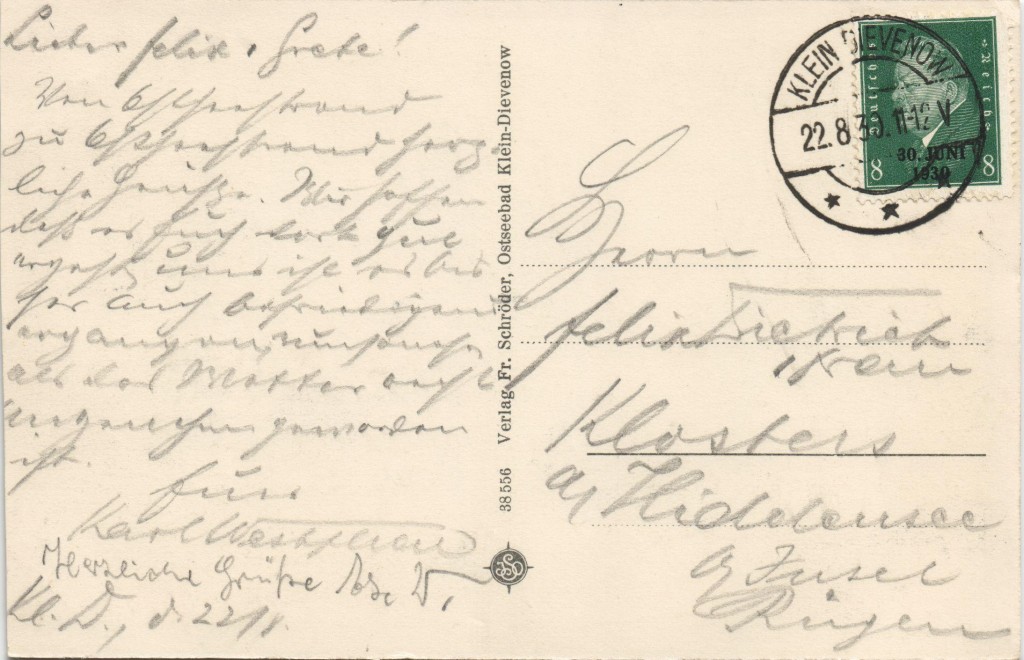 Lieber Felix u. Grete!
Von Ostseestrand
zu Ostseestrand herz-
liche Grüße. Wir hoffen
daß es Euch dort gut
ergeht, uns ist es bis
her auch befriedigend
ergangen, umsomehr
als das Wetter recht
angenehm geworden
ist.
Euer
Karl Westphal
Herzliche Grüße W.
Kl. D., d. 22/8.
38556 Verlag Fr. Schröder, Ostseebad Klein-Dievenow
KLEIN DIEVENOW
22.8.30.11-12 V
Deutsches Reich
30. JUNI
1930
8 8
Herrn
Felix Dietrich
u. Frau
Klosters
a/ Hiddensee
a/ Insel
Rügen